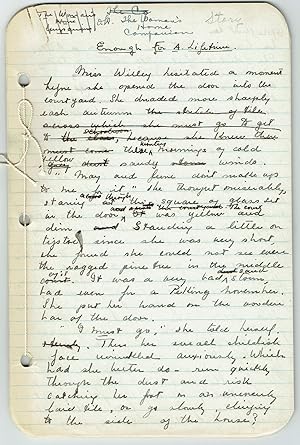 The Woman's
Home
The Co
The Woman's
Home
Companion
Story
Enough for A Lifetime.
Miss Willey hesitated a moment
before she opened the door into the
courtyard. She dreaded more sharply
each autumn the sketch of tiles
across which she must go to get
to the class, because she knew there
must come these mornings of cold
yellow sandy winds.
"May and June don't make up
to me for it," she thought miserably,
staring across through the square of glass set
in the door. It was yellow and
dim. Standing a little on
tiptoe, since she was very short,
she found she could not see even
the ragged pine tree in the middle
of it. It was a very bad sand storm,
bad even for a Peking November.
She put her hand on the wooden
bar of the door.
"I must go," she told herself.
Then her small childish
face wrinkled anxiously. Which
had she better do – run quickly
through the dust and risk
catching her foot in an unevenly
laid tile, or go slowly, clinging
to the side of the house?